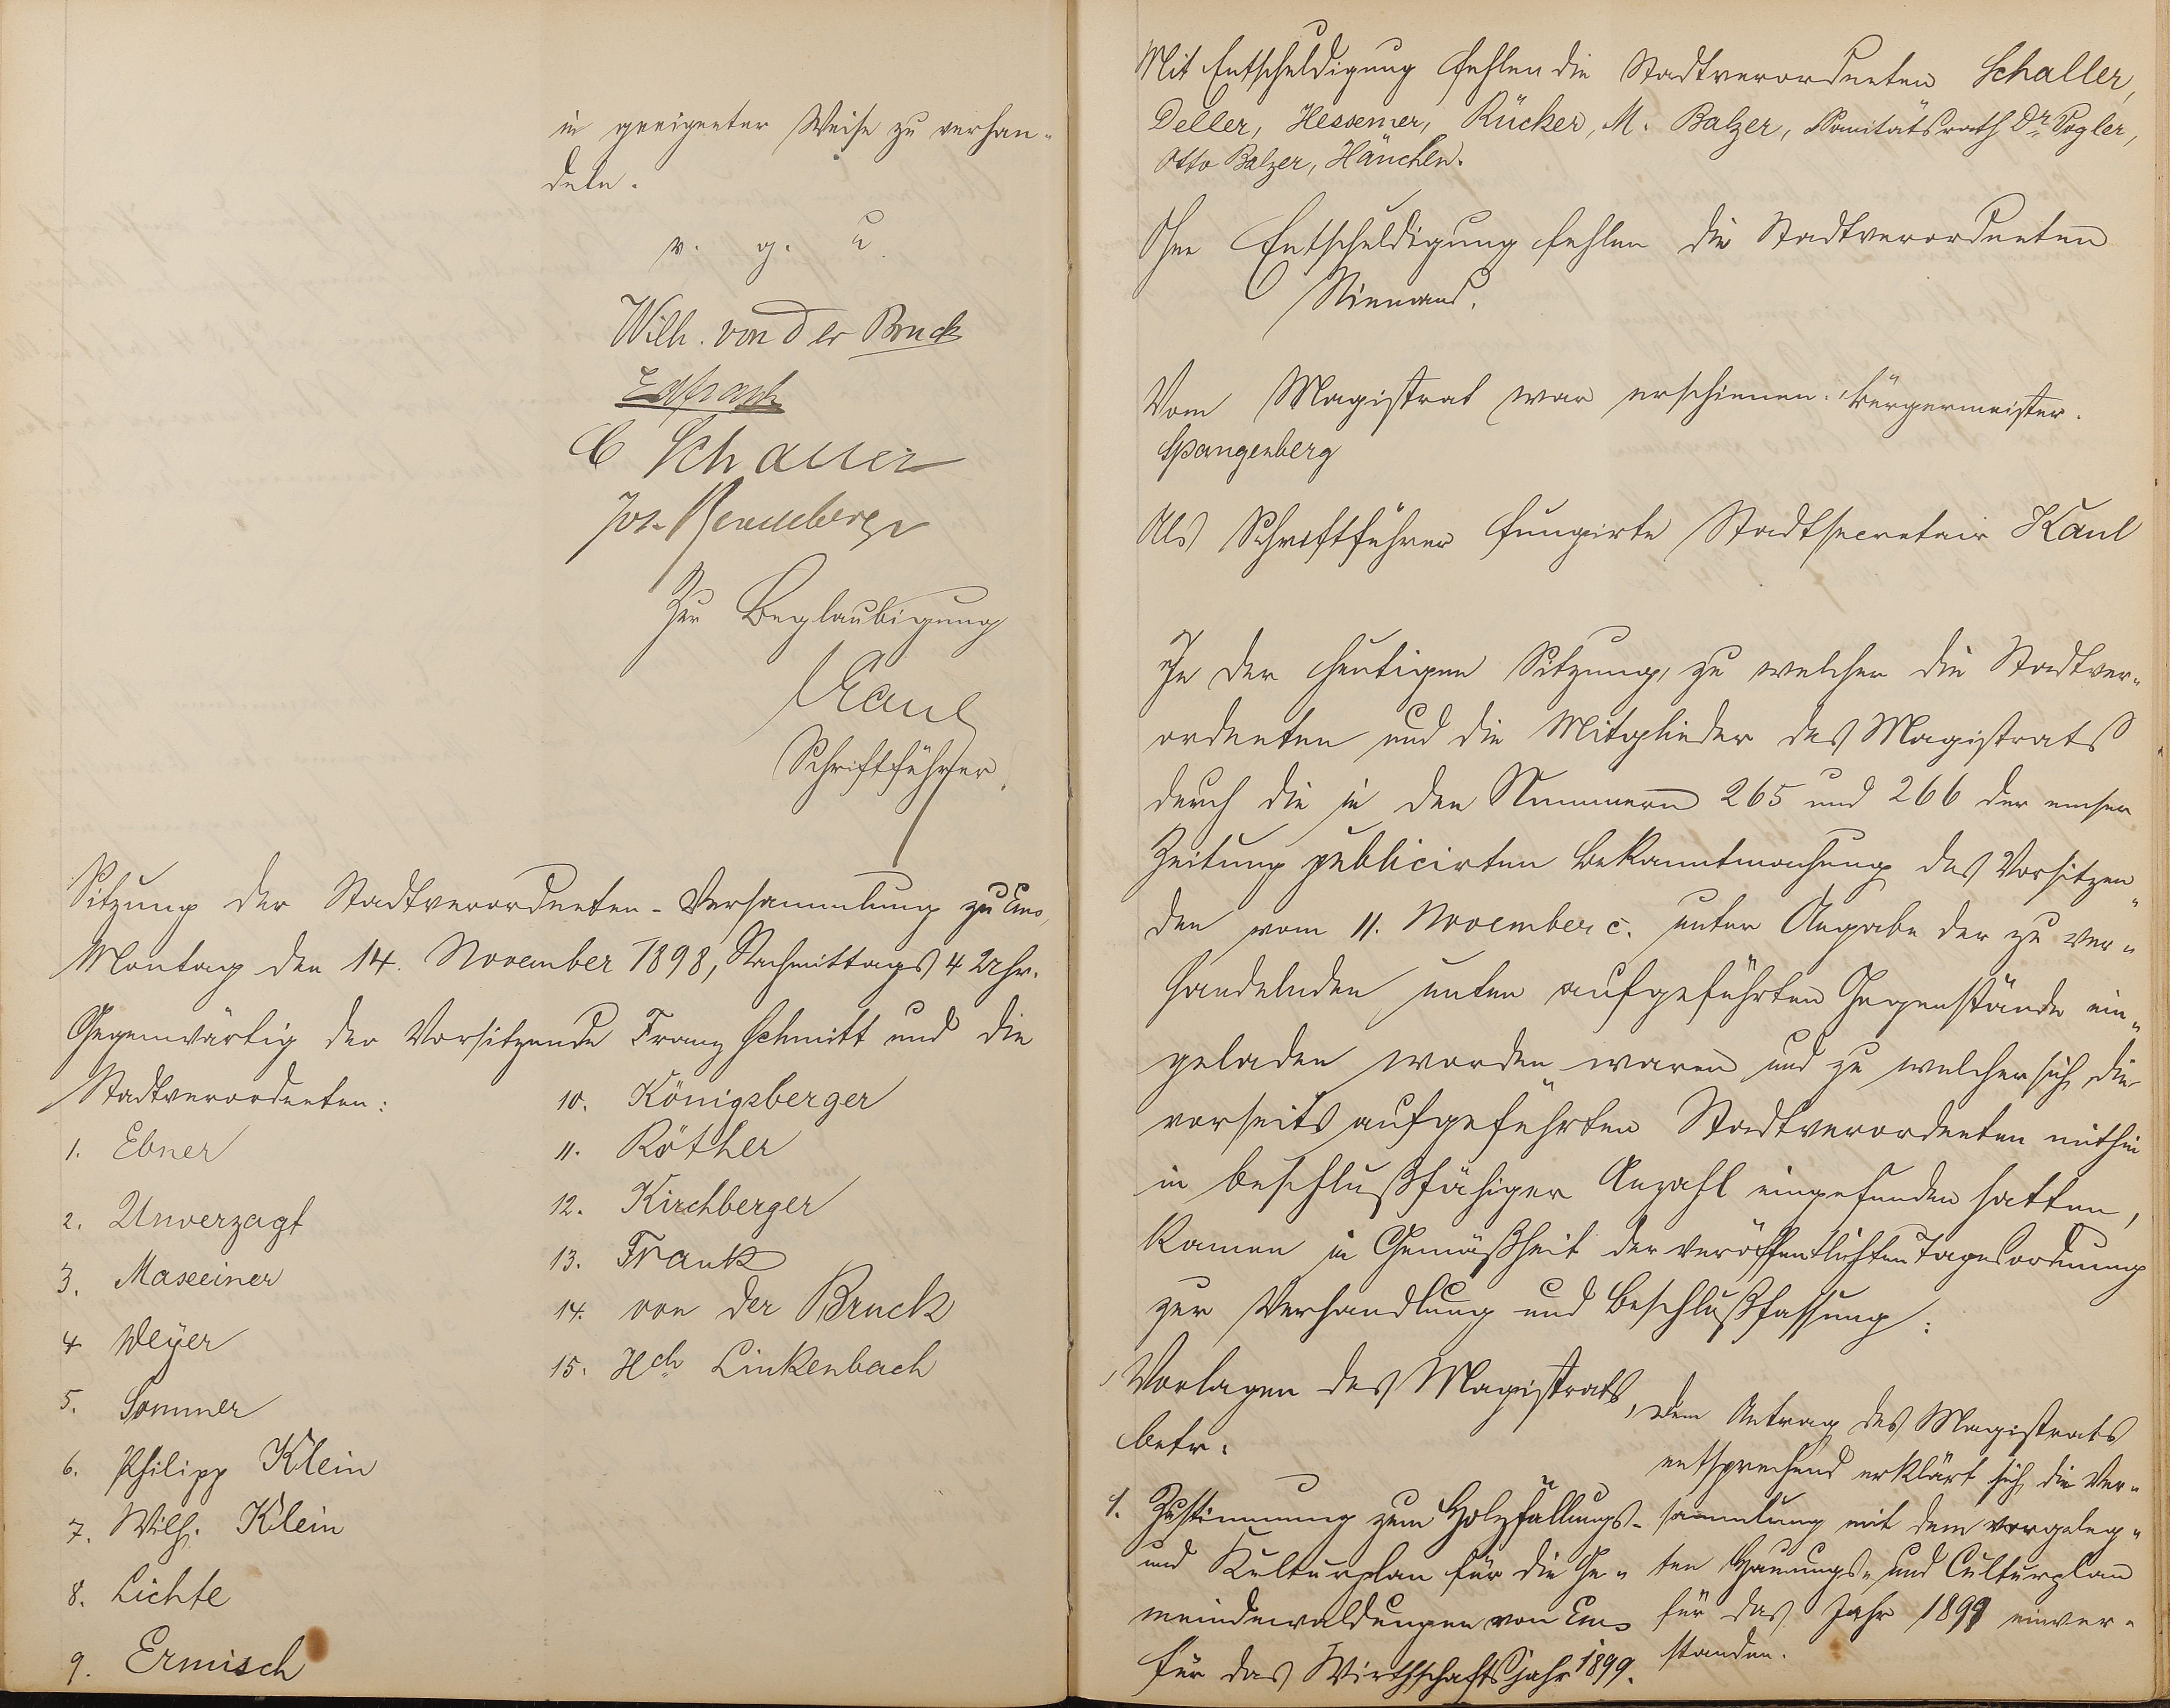 in geeigneter Weise zu verhan-
deln.
v. g. u.
Wilh. von der Bruck
C Schaller
Jos.
Zur Beglaubigung
Kaul
Schriftführer
Sitzung der Stadtverordneten-Versammlung zu Ems,
Montag den 14. November 1898, Nachmittags 4 Uhr.
Gegenwärtig der Vorsitzende Franz Schmitt und die
Stadtverordneten:
1. Ebner
2. Unverzagt
3. Maxeiner
4 Weyer
5. Sommer
6. Philipp Klein
7. Wilh. Klein
8. Lichte
9. Ermisch
10. Königsberger
11. Röther
12. Kirchberger
13. Frank
14. von der Bruck
15. Hch. Linkenbach
Mit Entschuldigung fehlen die Stadtverordneten Schaller,
Deller, Hessemer, Rücker, M. Balzer, Sanitätsrath Dr. Vogler,
Otto Balzer, Hänchen.
Ohne Entschuldigung fehlen die Stadtverordneten
Niemand.
Vom Magistrat war erschienen: Bürgermeister.
Spangenberg
Als Schriftführer fungirte Stadtsecretair Kaul
In der heutigen Sitzung, zu welcher die Stadtver-
ordneten und die Mitglieder des Magistrats
durch die in den Nummern 265 und 266 der emser
Zeitung publicirten Bekanntmachung des Vorsitzen-
den vom 11. November c. unter Angabe der zu ver-
handelnden unten aufgeführten Gegenstände ein-
geladen worden waren und zu welcher sich die
vorseits aufgeführten Stadtverordneten mithin
in beschlußfähiger Anzahl eingefunden hatten,
kamen in Gemäßheit der veröffentlichten Tagesordnung
zur Verhandlung und Beschlußfassung:
Vorlagen des Magistrats,
betr.
1. Zustimmung zum Holzfällungs-
und Kulturplan für die Ge-
meindewaldungen von Ems
für das Wirthschaftsjahr 1899.
Dem Antrag des Magistrats
entsprechend erklärt sich die Ver-
sammlung mit dem vorgeleg-
ten Hauungs- und Culturplan
für das Jahr 1899 einver-
standen.